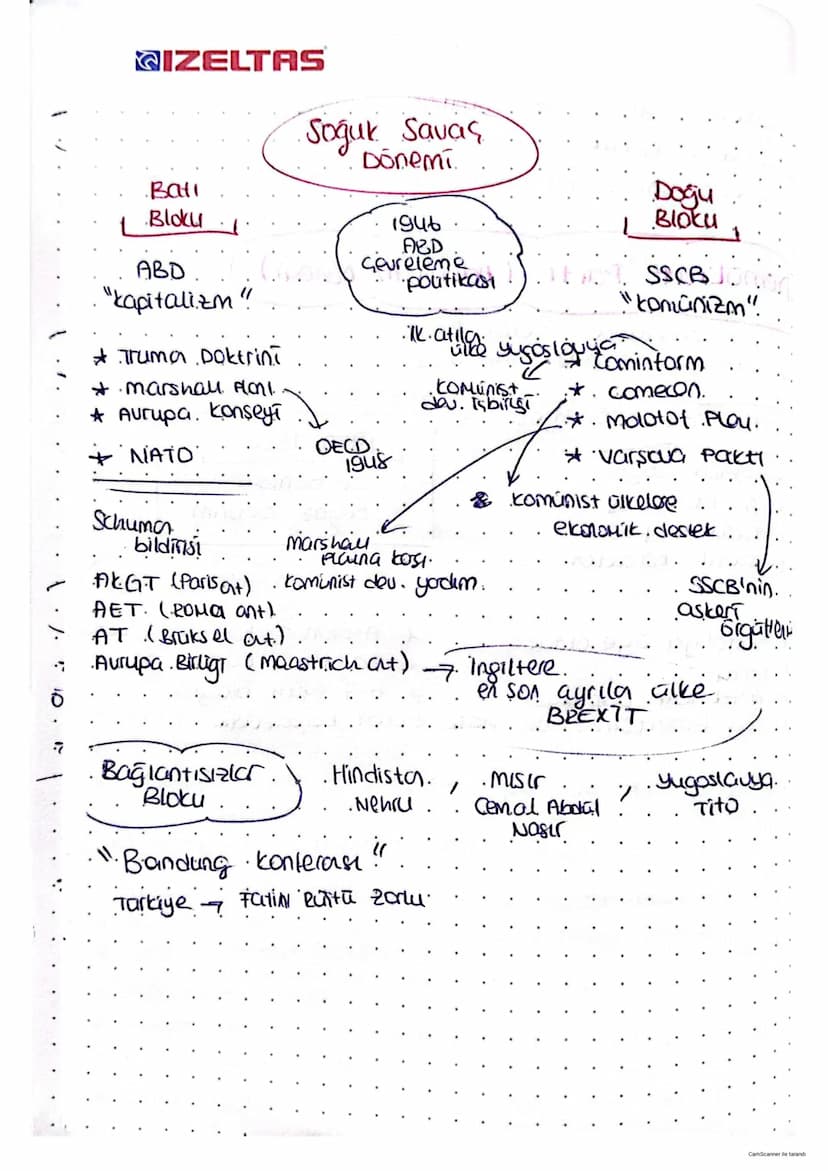 IZELTAS
Soğuk Savaş
Dönemi
Batı
Bloku
Doğu
Bloku
1946
ABD
Çevreleme
politikası
ABD
"Kapitalizm"
SSCB
"Komünizm"
İlk atılan
ülke Yugoslavya
* Truman Doktrini
* Marshall Planı
* Avrupa Konseyi
* NATO
OECD
1948
* Cominform
* Comecon
* Molotof Planı
* Varşova Paktı
Komünist
dev. işbirliği
Komünist ülkelere
ekonomik destek
Schuman
bildirisi
Marshall
Planına karşı
Komünist dev. yardım
SSCB'nin
askeri
örgütleri
AKGT (Paris ant)
AET (Roma ant)
AT (Brüksel ant)
Avrupa Birliği (Maastrich ant) → İngiltere
en son ayrılan ülke
BREXİT
Bağlantısızlar
Bloku
Hindistan
Nehru
,
Mısır
Cemal Abdül
Nasır
,
Yugoslavya
Tito
"Bandung Konferası"
Türkiye → Fatin Rüştü Zorlu
CamScanner ile tarandı